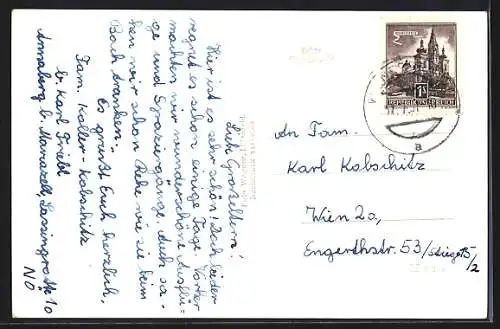 Lieb Großeltern!
Hier ist es sehr schön! Doch leider
regnet es schon einige Tage. Vorher
machten wir wunderschöne Ausflü-
ge und Spaziergänge. Auch sa-
hen wir schon Rehe wie sie beim
Bach tranken.
Es grüßt Euch herzlich,
Fam. Koller-Kobschitz
b. Karl Friebl
Annaberg b. Mariazell, Lassingrotte 10
NÖ
2
REPUBLIK ÖSTERREICH
An Fam.
Karl Kobschitz
Wien 20,
Engerthstr. 53/Stiege 5/2